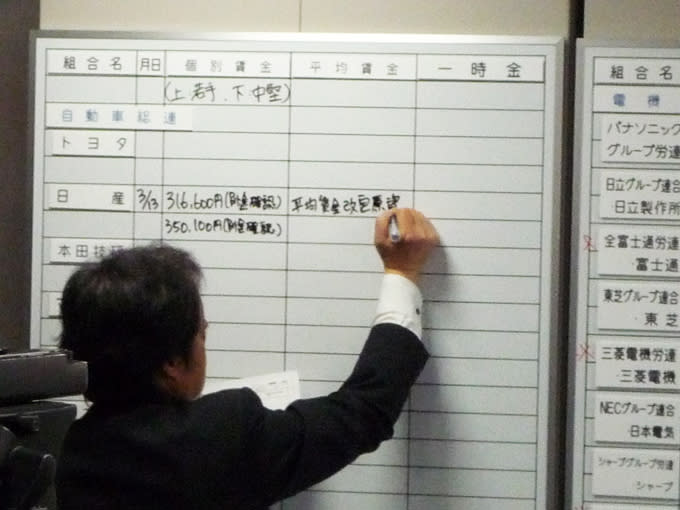 組合名 月日 個別賃金 平均賃金 一時金
(上.若手、下.中堅)
自動車総連
トヨタ
日産 3/13 316,600円(賃金確認) 平均賃金改定原資
350,100円(賃金確認)
本田技研
組合名
電機
パナソニック
グループ労連
日立グループ連合
・日立製作所
全富士通労連
・富士通
東芝グループ連合
・東芝
三菱電機労連
・三菱電機
NECグループ連合
・日本電気
シャープグループ労連
・シャープ